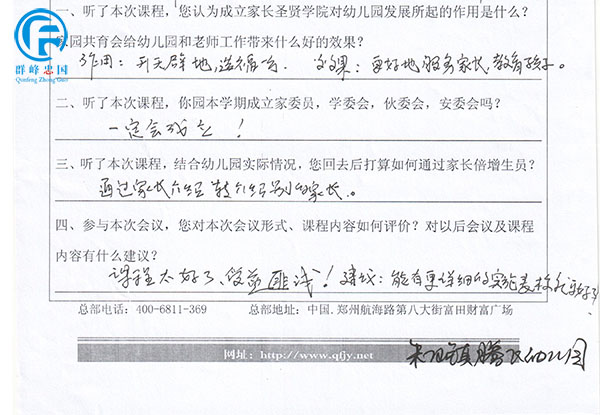 一、听了本次课程，您认为成立家长圣贤学院对幼儿园发展所起的作用是什么？
群峰忠国
Qunfeng Zhong Guo
家园共育会给幼儿园和老师工作带来什么好的效果？
作用：开天辟地，造福 效果：更好地服务家长，教育孩子。
二、听了本次课程，你园本学期成立家委员，学委会，伙委会，安委会吗？
一定会成立！
三、听了本次课程，结合幼儿园实际情况，您回去后打算如何通过家长倍增生员？
通过家长介绍 转介绍别的家长。
四、参与本次会议，您对本次会议形式、课程内容如何评价？对以后会议及课程
内容有什么建议？
课程太好了、受益匪浅！建议：能有更详细的实施
总部电话：400-6811-369 总部地址：中国.郑州航海路第八大街富田财富广场
网址：http://www.qfjy.net
朱阳镇腾飞幼儿园